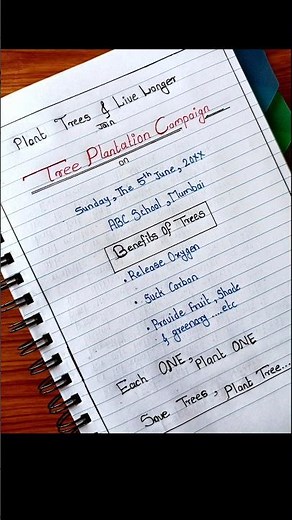 Plant Trees & Live Longer
Join
Tree Plantation Campaign
on
Sunday, The 5th June, 20XX
ABC School, Mumbai
Benefits of Trees
• Release Oxygen
• Suck Carbon
• Provide Fruit, Shade
& greenary ....etc
Each ONE, Plant ONE
Save Trees, Plant Tree....